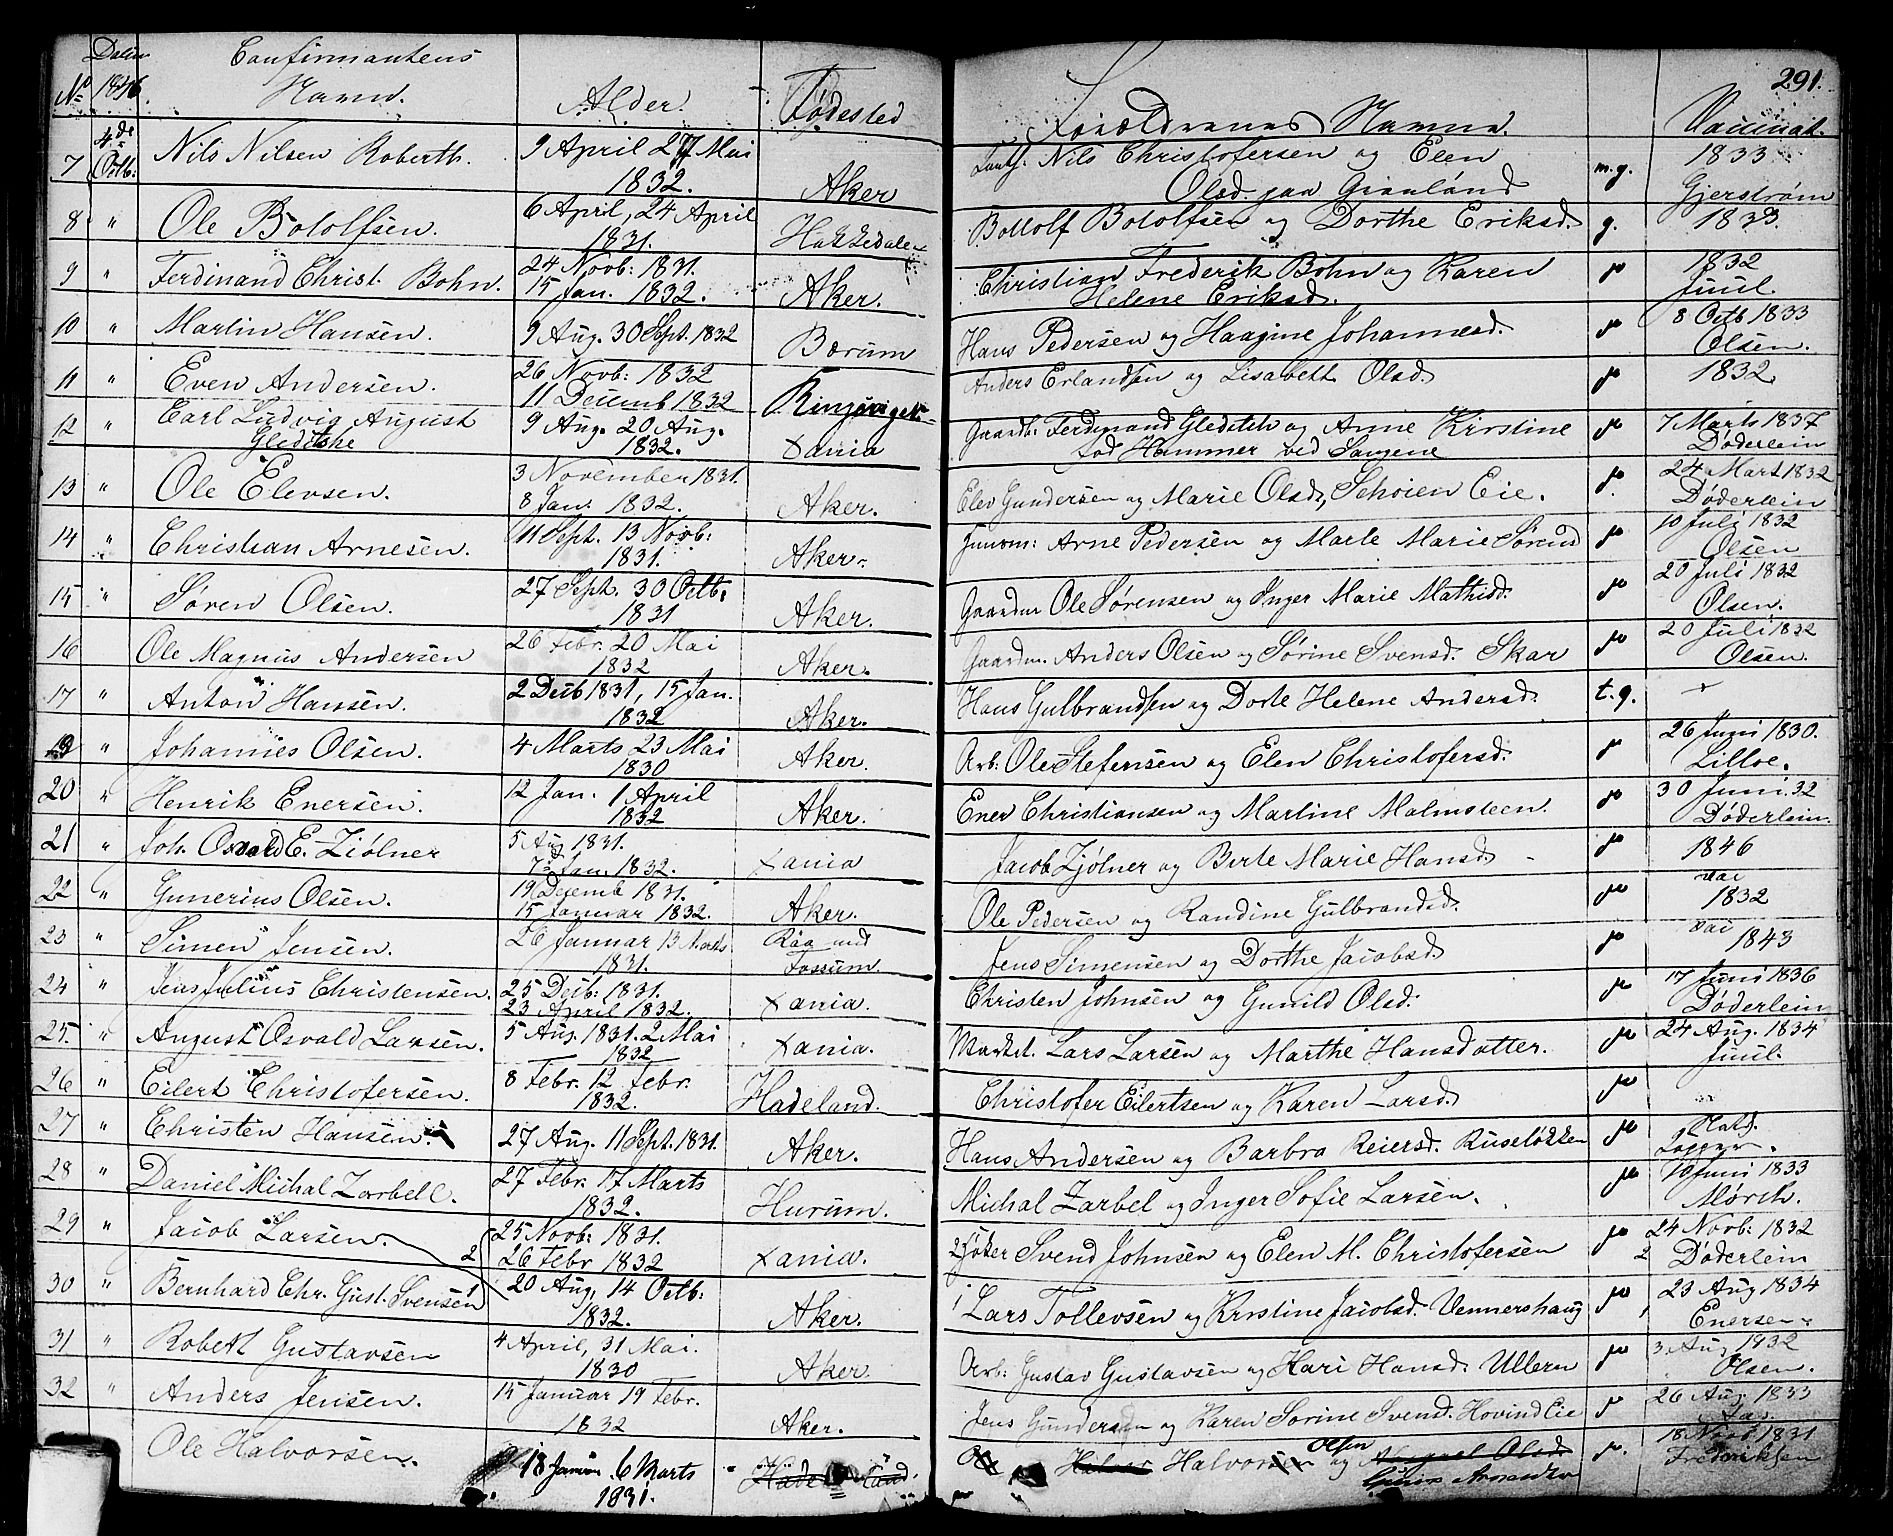 Datum Confirmantens
No 1846. Navn. Alder. Fødested
7 4de Octb: Nils Nilsen Roberth. 9 April 27 Mai
1832. Aker
8 " Ole Botolfsen. 6 April, 24 April
1831. Hakkedalen
9 " Ferdinand Christ. Bohn. 24 Novb: 1831.
15 Jan. 1832. Aker.
10 " Martin Hansen. 9 Aug. 30 Sept. 1832 Bærum
11 " Even Andersen. 26 Novb: 1832
11 Decemb 1832 Ringeriget
12 " Carl Ludvig August 9 Aug. 20 Aug.
Gleditche 1832. Xania
13 " Ole Elevsen. 3 November 1831.
8 Jan. 1832. Aker.
14 " Christian Arnesen. 11 Sept. 13 Novb:
1831. Aker.
15 " Søren Olsen. 27 Sept. 30 Octb.
1831 Aker.
16 Ole Magnus Andersen 26 Febr. 20 Mai
1832 Aker.
17 " Anton Hansen. 2 Decb 1831, 15 Jan.
1832 Aker.
19 " Johannes Olsen. 4 Marts 23 Mai
1830 Aker.
20 " Henrik Enersen. 12 Jan. 1 April
1832 Aker.
21 " Joh. Osvald E. Ziølner 5 Aug 1831.
7 Jan. 1832. Xania
22 " Gunerius Olsen. 19 Decemb 1831.
15 Januar 1832. Aker.
23 " Simen Jensen. 26 Januar 13 Marts
1831. Fossum.
24 " Jens Julius Christensen. 25 Decb: 1831.
23 April 1832. Xania.
25. " August Osvald Larsen. 5 Aug. 1831. 2 Mai
1832 Xania.
26 " Eilert Christofersen. 8 Febr. 12 Febr.
1832. Hadeland.
27 " Christen Hansen. 27 Aug. 11 Sept. 1831. Aker.
28 " Daniel Michal Zarbell. 27 Febr. 17 Marts
1832. Hurum.
29 " Jacob Larsen. 2 25 Novb: 1831.
26 Febr 1832 Xania.
30 " Bernhard Chr. Gust. Svensen 1 20 Aug, 14 Octb:
1832. Aker.
31 " Robert Gustavsen 4 April, 31 Mai.
1830 Aker.
32 " Anders Jensen. 15 Januar 19 Febr.
1832 Aker.
Ole Halvorsen. 18 Januar 6 Marts
1831.
291.
Forældrenes Navne. Vaccinat.
Nils Christofersen og Elen m.g. 1833
Olsd. paa Grønland Gjerstrøm
Bottolf Botolfsen og Dorthe Eriksd. g. 1833.
Christian Frederik Bohn og Karen 1832
Helene Eriksd. Juul.
Hans Pedersen og Haagine Johannesd. 8 Octb 1833
Olsen.
Anders Erlandsen og Lisabeth Olsd. 1832.
Gaardb. Ferdinand Gleditch og Anne Kirstine 7 Marts 1837
fød Hammer ved Saugene Døderlein
Elev Gundersen og Marie Olsd, Schøien Eie. 24 Mart 1832
Døderlein
Arne Pedersen og Marie Sørensd 10 Juli 1832
Olsen
Gaardm Ole Sørensen og Inger Marie Mathisd. 20 Juli 1832
Olsen.
Gaardm. Anders Olsen og Sørine Svensd. Skar 20 Juli 1832
Olsen.
Hans Gulbrandsen og Dorte Helene Andersd. t.g.
Arb: Ole Stefensen og Elen Christofersd. 26 Juni 1830.
Lilloe.
Ener Christiansen og Martine Malmsteen. 30 Juni 32
Døderlein.
Jacob Zjølner og Berte Marie Hansd. 1846
Ole Pedersen og Randine Gulbrandsd. vac
1832
Jens Simensen og Dorthe Jacobsd. vac
1843
Christen Johnsen og Gunild Olsd. 17 Juni 1836
Døderlein
Lars Larsen og Marthe Hansdatter. 24 Aug. 1834
Juul.
Christofer Eilertsen og Karen Larsd.
Hans Andersen og Barbra Reiersd. Ruseløkken
Michal Zarbel og Inger Sofie Larsen. Juni 1833
Mørch.
2 Svend Johnsen og Elen M. Christofersen 24 Novb: 1832
2 Døderlein
1 Lars Tollevsen og Kirstine Jacobsd. Vennershaug 23 Aug 1834
1 Enersen
Arb: Gustav Gustavsen og Kari Hansd. Ullern 3 Aug 1832
Olsen.
Jens Gundersen og Karen Sørine Svensd. Hovind Eie 26 Aug 1833
Ole Halvorsen Olsen og 18 1831
Frederiksen